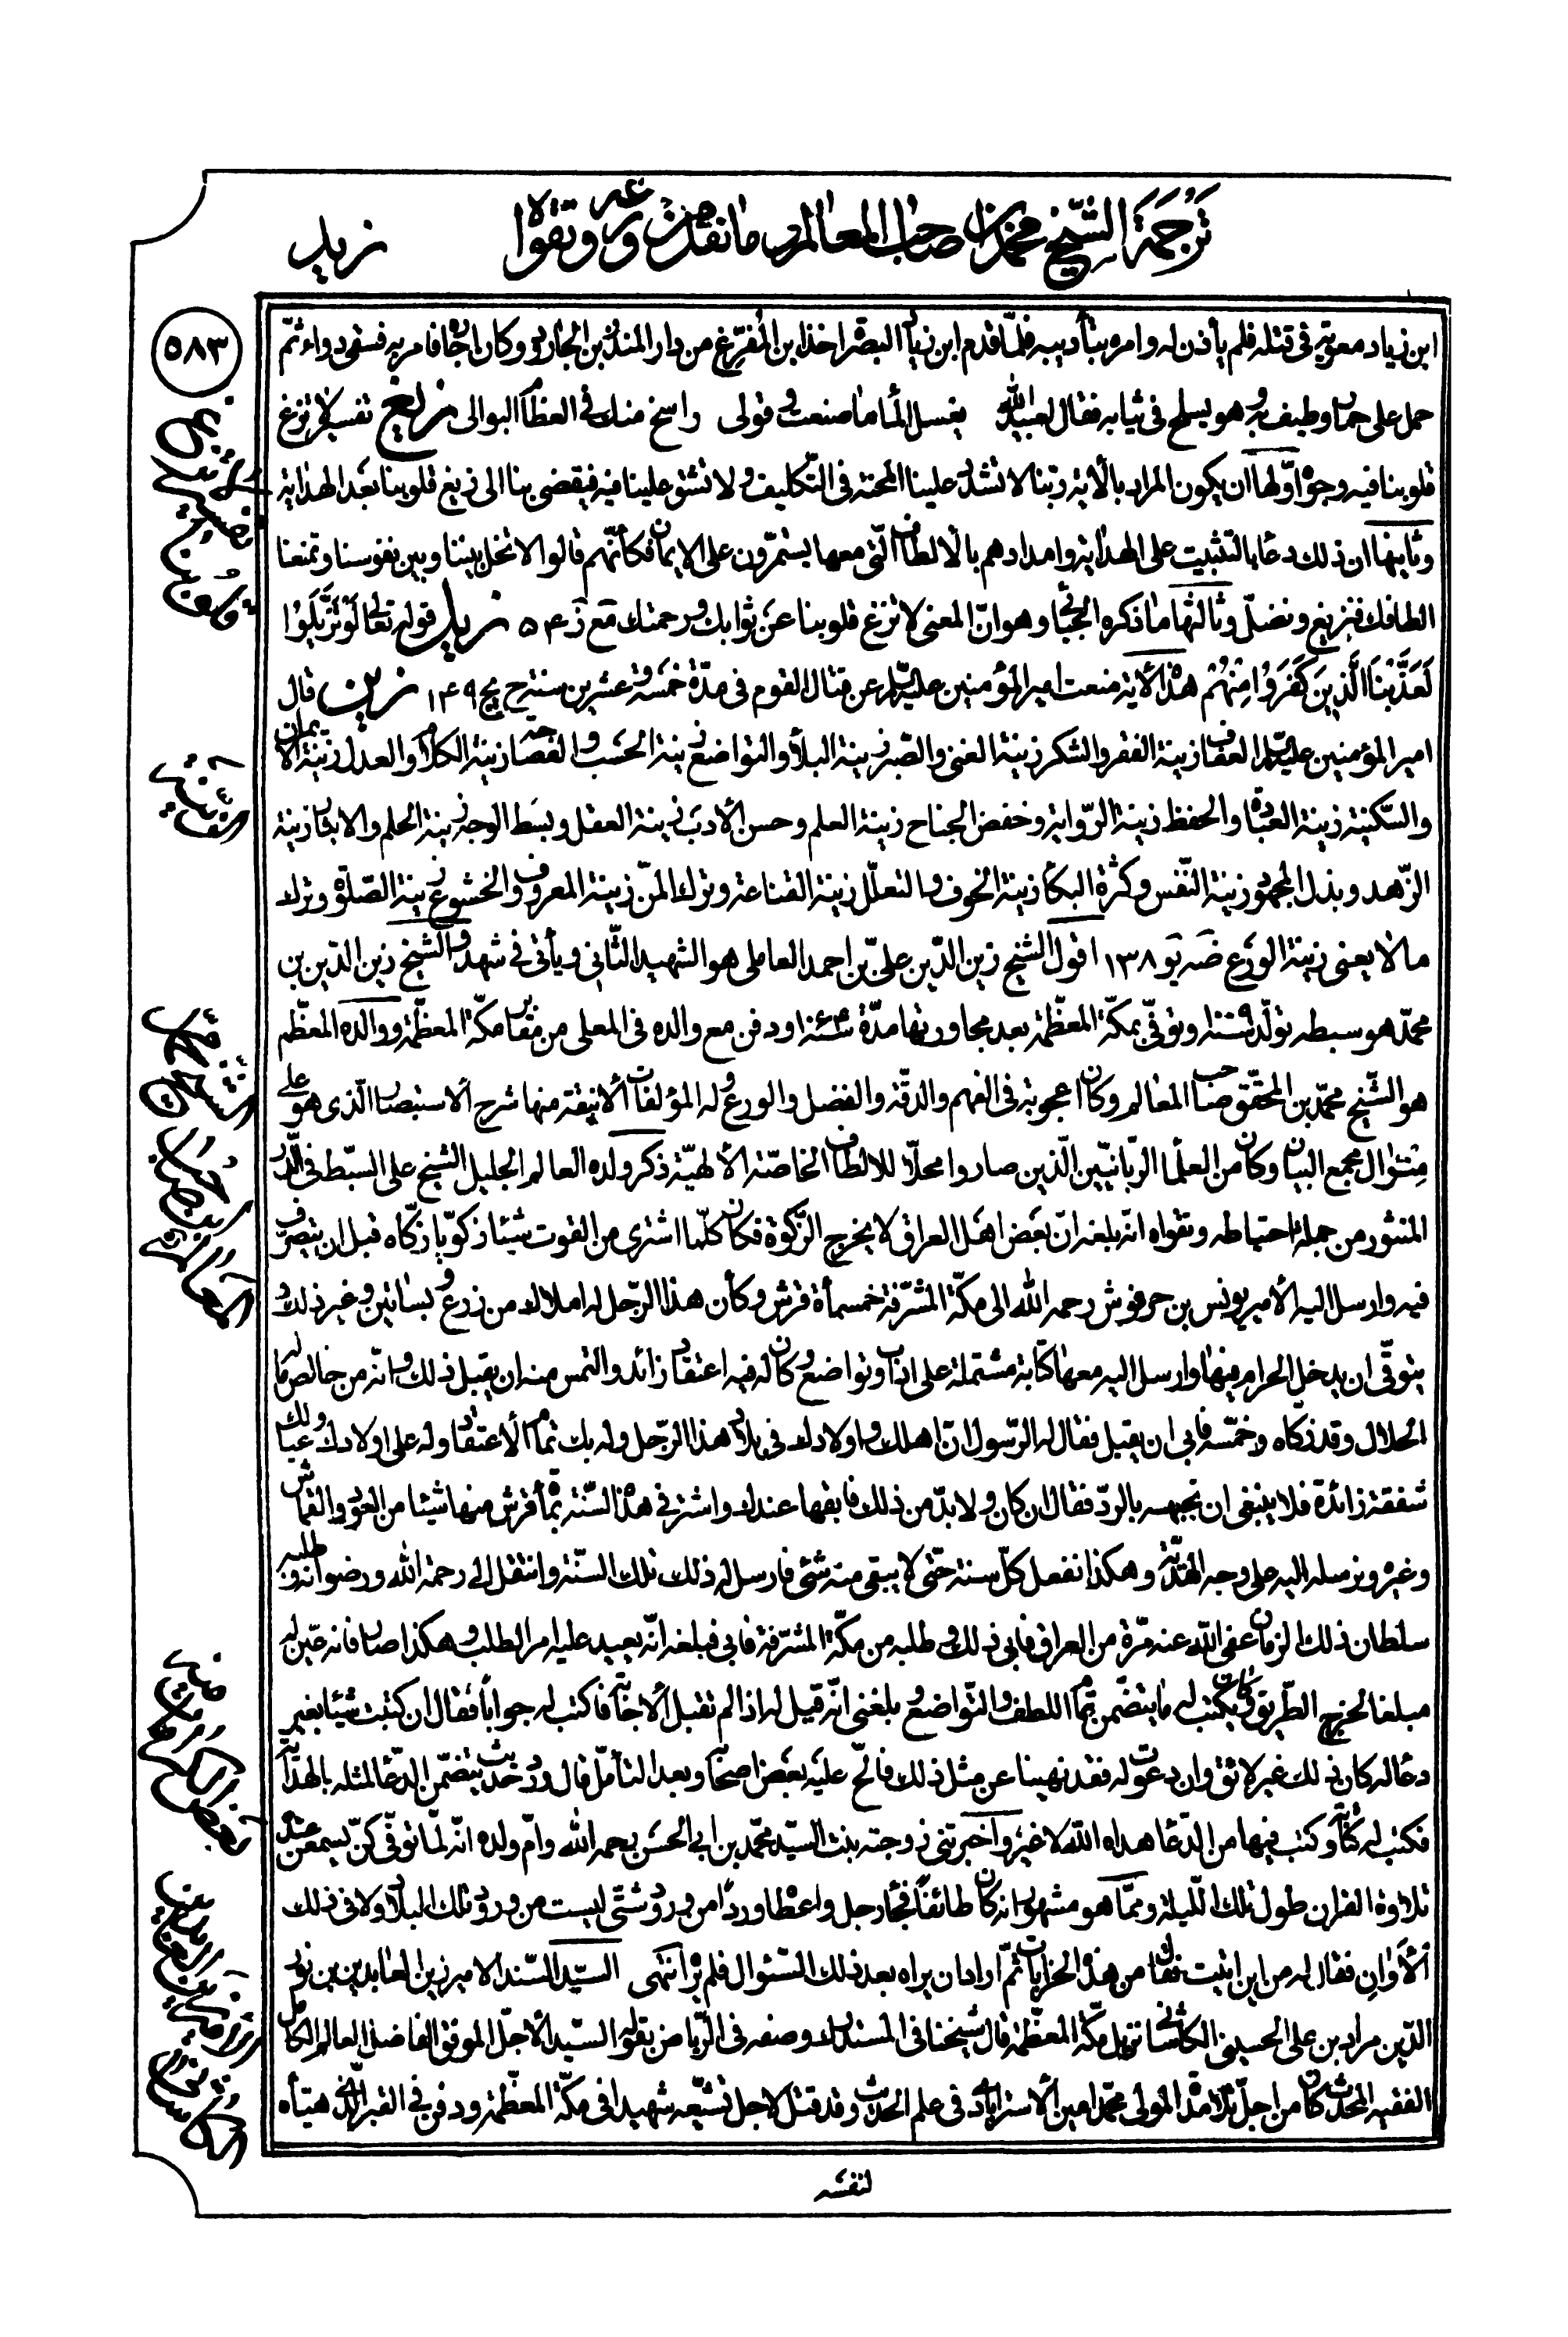 ترجمة الشيخ محمد بن صاحب المعالم و ما نقل من ورعه و تقواه
زيد
٥٨٣
ابن زياد معوية فى قتله فلم يأذن له وامره بتأديبه فلمّا قدم ابن زياد البصرة اخذ ابن المفرّغ من دار المنذر بن الجارود وكان اجاره فامر به فسقى دواء ثمّ
حمل على حمار وطيف به وهو يسلح فى ثيابه فقال لعبيد الله يغسل الماء ما صنعت وقولى راسخ منك فى العظام البوالى زيغ تفسير لا تزغ
قلوبنا فيه وجوه اوّلها ان يكون المراد بالأية ربّنا لا تشدّد علينا المحنة فى التّكليف ولا تشقّ علينا فيه فيقضى بنا الى زيغ قلوبنا بعد الهداية
وثانيها ان ذلك دعاء بالتثبيت على الهداية وامدادهم بالألطاف الّتى معها يستمرّون على الايمان فكأنّهم قالوا لا تخل بيننا وبين نفوسنا وتمنعنا
الطافك فنزيغ ونضلّ وثالثها ما ذكره الجبّائى وهو انّ المعنى لا تزغ قلوبنا عن ثوابك ورحمتك مع ز ٥٤ زيل قوله تعالى لَوْ تَزَيَّلُوا
لَعَذَّبْنَا الَّذِينَ كَفَرُوا مِنْهُمْ هذه الأية منعت امير المؤمنين عليه السلام عن قتال القوم فى مدّة خمسة وعشرين سنة ح مج ١٤٩ زين قال
امير المؤمنين عليه السلام العفاف زينة الفقر والشكر زينة الغنى والصّبر زينة البلاء والتواضع زينة الحسب والفصاحة زينة الكلام والعدل زينة الايمان
والسّكينة زينة العبادة والحفظ زينة الرّواية وخفض الجناح زينة العلم وحسن الأدب زينة العقل وبسط الوجه زينة الحلم والايثار زينة
الزّهد وبذل المجهود زينة النّفس وكثرة البكاء زينة الخوف والتعلّل زينة القناعة وترك المنّ زينة المعروف والخشوع زينة الصّلوة وترك
ما لا يعنى زينة الورع ضه يو ١٣٨ اقول الشيخ زين الدّين علىّ بن احمد العاملى هو الشهيد الثّانى ويأتى فى شهد والشيخ زين الدّين بن
محمّد هو سبطه تولّد وتوفّى بمكّة المعظّمة بعد مجاورتها مدّة ودفن مع والده فى المعلى من مقابر مكّة المعظّمة ووالده المعظّم
هو الشّيخ محمّد بن المحقّق صاحب المعالم وكان اعجوبة فى الفهم والدقّة والفضل والورع وله المؤلفات الأنيقة منها شرح الاستبصار الّذى هو على
منوال مجمع البيان وكان من العلماء الربّانيّين الّذين صاروا محلاّ للالطاف الخاصّة الألهيّة ذكر ولده العالم الجليل الشيخ على السّبط فى الدّر
المنثور من جملة احتياطه وتقواه انّه بلغه انّ بعض اهل العراق لا يخرج الزّكوة فكان كلّما اشترى من القوت شيئا زكويّا زكّاه قبل ان يتصرّف
فيه وارسل اليه الأمير يونس بن حرفوش رحمه الله الى مكّة المشرّفة خمسمأة قرش وكأن هذا الرّجل له املاك من زرع وبساتين وغير ذلك و
يتوقّى ان يدخل الحرام فيها وارسل اليه معها كتابة مشتملة على اداب وتواضع وكان له فيه اعتقاد زائد والتمس منه ان يقبل ذلك وانّه من خالص ماله
الحلال وقد زكاه وخمّسه فابى ان يقبل فقال له الرّسول انّ اهلك واولادك فى بلاد هذا الرّجل وله بك تمام الأعتقاد وله على اولادك وعيالك
شفقة زائدة فلا ينبغى ان تجبهه بالردّ فقال ان كان ولا بدّ من ذلك فابقها عندك واشتر فى هذه السّنة بمأة قرش منها شيئا من العود والقماش
وغيره ونرسله اليه على وجه الهديّة وهكذا نفعل كلّ سنة حتّى لا يبقى منه شئ فارسل له ذلك تلك السّنة وانتقل الى رحمة الله ورضوانه وطلبه
سلطان ذلك الزمان عفى الله عنه مرّة من العراق فابى ذلك وطلبه من مكّة المشرّفة فابى فبلغه انّه يعيد عليه امر الطلب وهكذا صار فانه عيّن له
مبلغا لخرج الطّريق وكان يكتب له ما يتضمن تمام اللطف والتّواضع وبلغنى انّه قيل له اذا لم تقبل الأجابة فاكتب له جوابا فقال ان كتبت شيئا بغير
دعاء له كان ذلك غير لائق وان دعوت له فقد نهينا عن مثل ذلك فالحّ عليه بعض اصحابه وبعد التأمّل قال ورد حديث يتضمّن الدّعاء لمثله بالهداية
فكتب له كتابة وكتب فيها من الدّعاء هداه الله لا غير واخبرتنى زوجته بنت السيّد محمّد بن ابى الحسن رحمه الله وامّ ولده انّه لمّا توفّى كنّ يسمعن عنده
تلاوة القران طول تلك اللّيلة وممّا هو مشهور انه كان طائفا فجاء رجل واعطاه وردا من ورود شتّى ليست من ورود تلك البلاد ولا فى ذلك
الأوان فقال له من اين اتيت فقال من هذه الخرابات ثمّ اراد ان يراه بعد ذلك السّئوال فلم يره انتهى السيّد السّند الامير زين العابدين بن نور
الدّين مراد بن على الحسينى الكاشانى نزيل مكّة المعظّمة قال شيخنا فى المستدرك وصفه فى الرّياض بقوله السيّد الأجلّ الموفق الفاضل العالم الكامل
الفقيه المحدّث كان من اجلّ تلامذة المولى محمّد امين الأسترابادى فى علم الحديث وقد قتل لاجل تشيّعه شهيدا فى مكّة المعظّمة ودفن فى القبر الّذى هيّأه
لنفسه